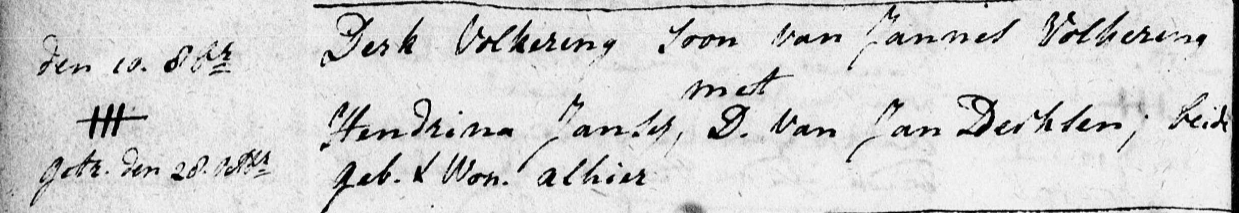 Derk Volkering Soon van Jannes Volkering
den 10. 8br
met
Hendrina Jansz, D. van Jan Derksen; beide
getr. den 28. 8tbr
geb. & Won. alhier